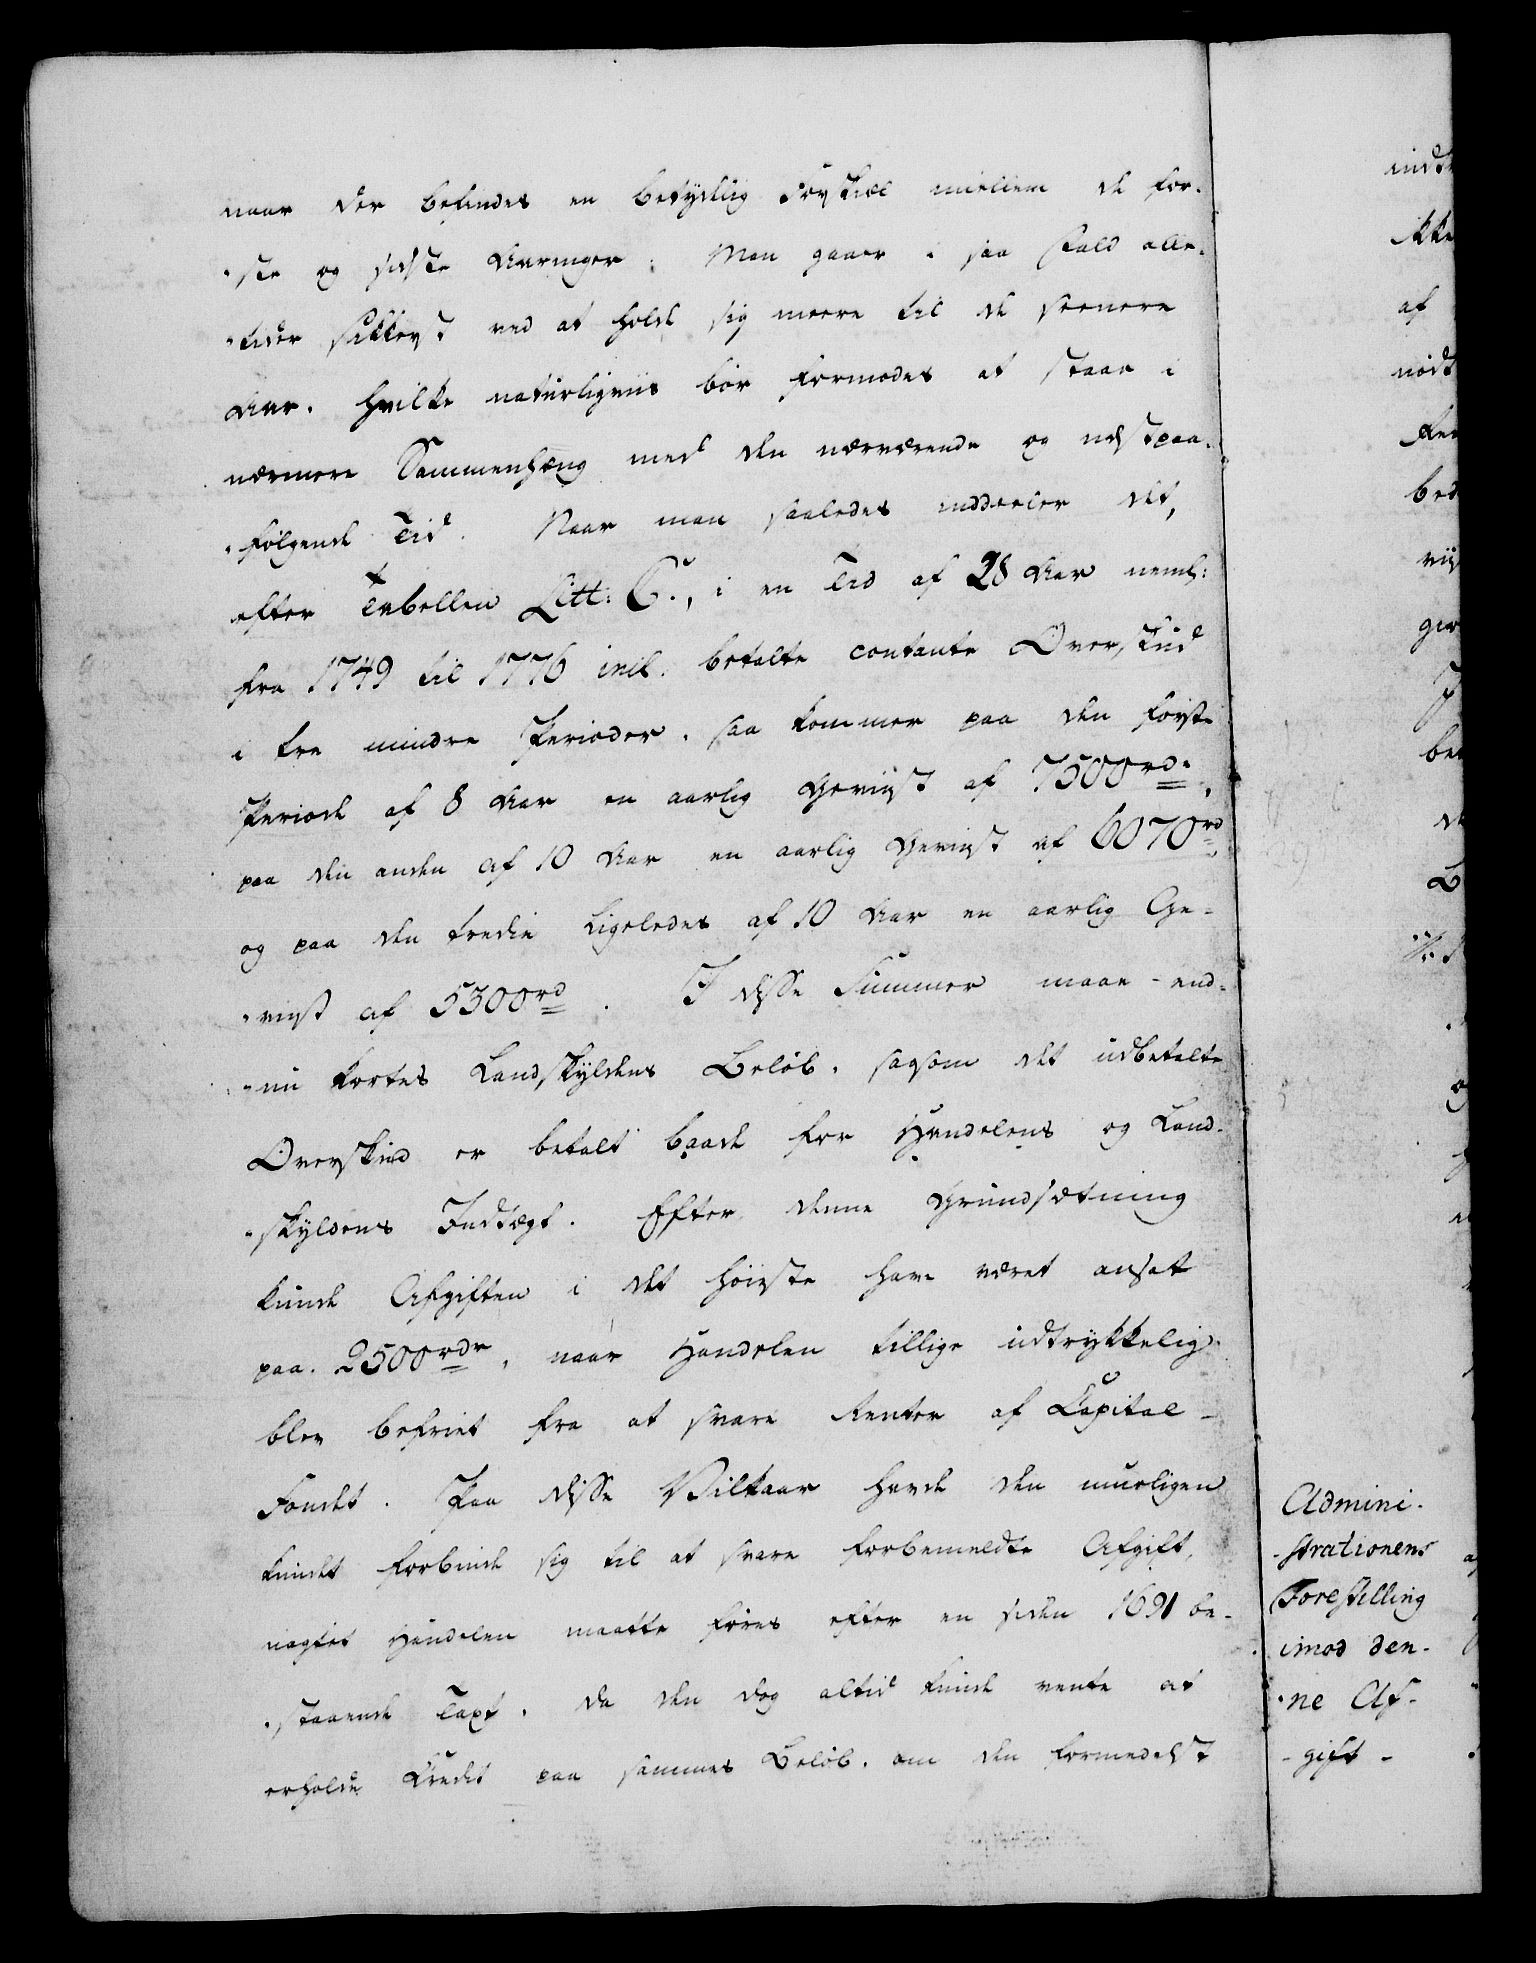 naar der befindes en betydelig Forskiæl imellem de før-
-ste og sidste Aaringer. Man gaaer i saa Fald alle-
-tider sikkerst ved at holde sig meere til de seenere
Aar, hvilke naturligviis bør formodes at staae i
nærmere Sammenhæng med den nærværende og næstpaa-
-følgende Tid. Naar man saaledes inddeeler det,
efter Tabellen Litt: C., i en Tid af 28 Aar neml:
fra 1749 til 1776 incl. betalte contante Overskud
i tre mindre Perioder, saa kommer paa den første
Periode af 8 Aar en aarlig Gevinst af 7500rd.,
paa den anden af 10 Aar en aarlig Gevinst af 6070rd,
og paa den tredie ligeledes af 10 Aar en aarlig Ge-
-vinst af 5300rd. I disse Summer maae end-
-nu kortes Landskyldens Beløb, saasom det udbetalte
Overskud er betalt baade for Handelens og Land-
-skyldens Indtægt. Efter denne Grundsætning
kunde Afgiften i det høieste have været ansat
paa 2500rdr, naar Handelen tillige udtrykkelig
blev befriet fra at svare Renter af Capital-
Fondet. Paa disse Vilkaar havde den mueligen
kundet forbinde sig til at svare forbemeldte Afgift,
uagtet Handelen maatte føres efter en siden 1691 be-
-staaende Taxt, da den dog altid kunde vente at
erholde Credit paa sammes Beløb, om den formedelst
Admini-
-strationens
Forestilling
imod den-
-ne Af-
-gift-